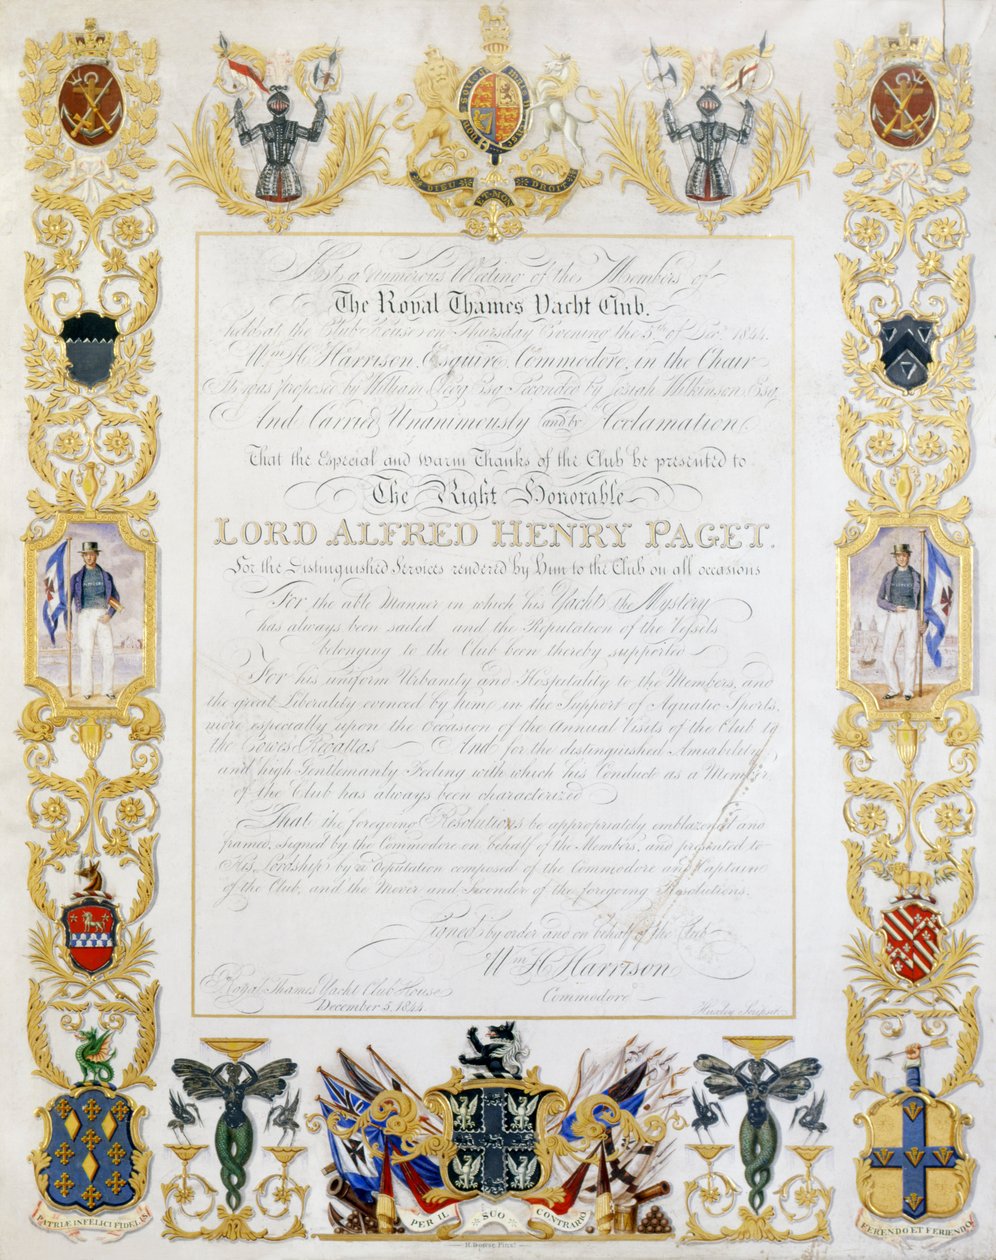 DIEU ET MON DROIT
At a Numerous Meeting of the Members of
The Royal Thames Yacht Club.
held at the Club House on Thursday Evening the 5th of Decr. 1844.
Wm. H. Harrison, Esquire, Commodore, in the Chair
It was proposed by William Esq. Seconded by Josiah Wilkinson Esq.
And Carried Unanimously and by Acclamation,
That the Especial and warm Thanks of the Club be presented to
The Right Honorable
LORD ALFRED HENRY PAGET.
For the Distinguished Services rendered by Him to the Club on all occasions
For the able Manner in which his Yacht the Mystery
has always been sailed and the Reputation of the Vessels
belonging to the Club been thereby supported
For his uniform Urbanity and Hospitality to the Members, and
the great Liberality evinced by him in the Support of Aquatic Sports,
more especially upon the Occasion of the Annual Visits of the Club to
the Cowes Regattas And for the distinguished Amiability
and high Gentlemanly Feeling with which his Conduct as a Member
of the Club has always been characterized
That the foregoing Resolutions be appropriately emblazoned and
framed, signed by the Commodore on behalf of the Members, and presented to
His Lordship by a Deputation composed of the Commodore and Captain
of the Club, and the Mover and Seconder of the foregoing Resolutions.
Signed by order and on behalf of the Club
Wm. H. Harrison
Commodore
Royal Thames Yacht Club House
December 5, 1844.
Huxley Scripsit
PATRIÆ INFELICI FIDELIS
PER IL SUO CONTRARIO
FERENDO ET FERIENDO